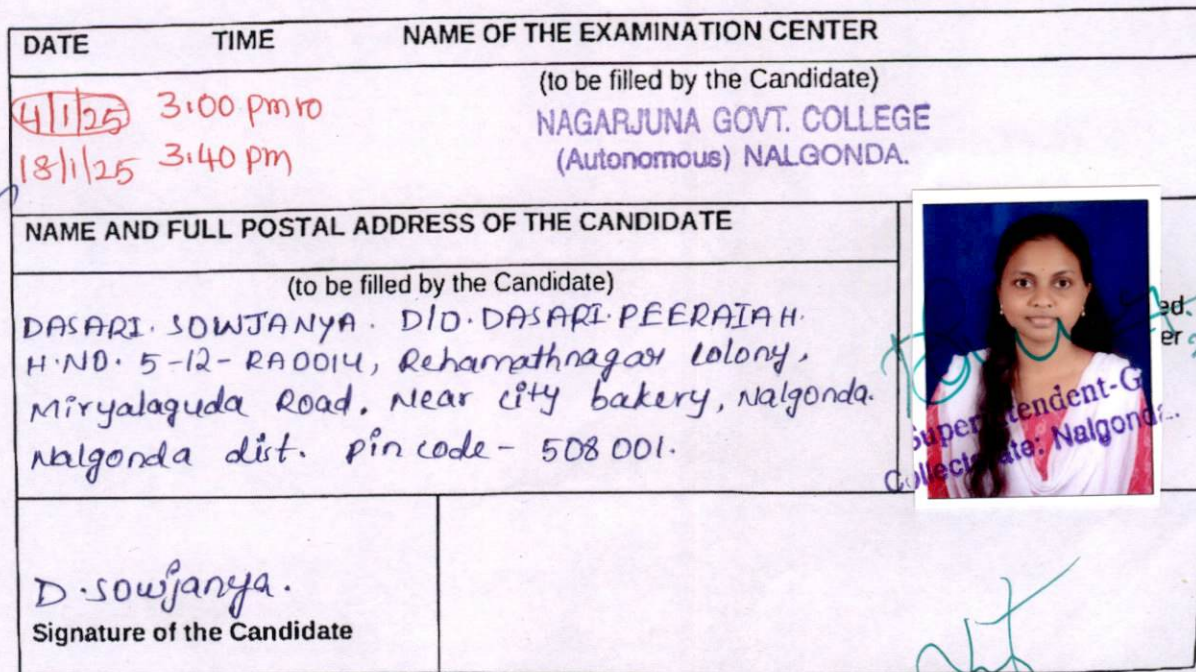 DATE TIME NAME OF THE EXAMINATION CENTER
(to be filled by the Candidate)
4/1/25 3:00 pm to
18/1/25 3.40 pm
NAGARJUNA GOVT. COLLEGE
(Autonomous) NALGONDA.
NAME AND FULL POSTAL ADDRESS OF THE CANDIDATE
(to be filled by the Candidate)
DASARI. SOWJANYA. D/O. DASARI. PEERAIAH.
H.NO. 5-12-RA0014, Rehamathnagar Colony,
Miryalaguda Road. Near city bakery, Nalgonda.
Nalgonda dist. Pin code - 508 001.
ed.
er
Superintendent-G
Collectorate: Nalgonda.
D.Sowjanya.
Signature of the Candidate